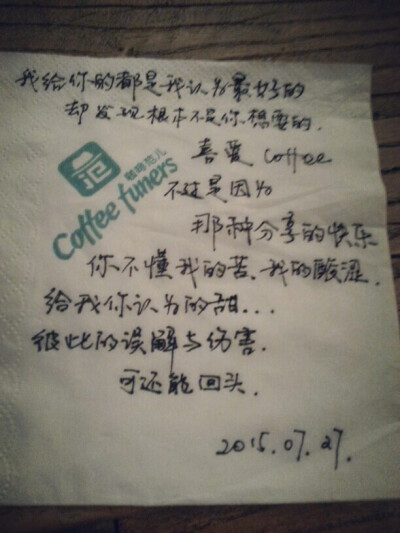 我给你的都是我认为最好的
却发现根本不是你想要的.
喜爱 coffee
不过是因为
那种分享的快乐
你不懂我的苦、我的酸涩.
给我你认为的甜...
彼此的误解与伤害.
可还能回头.
2015.07.27.
咖啡范儿
Coffee funers